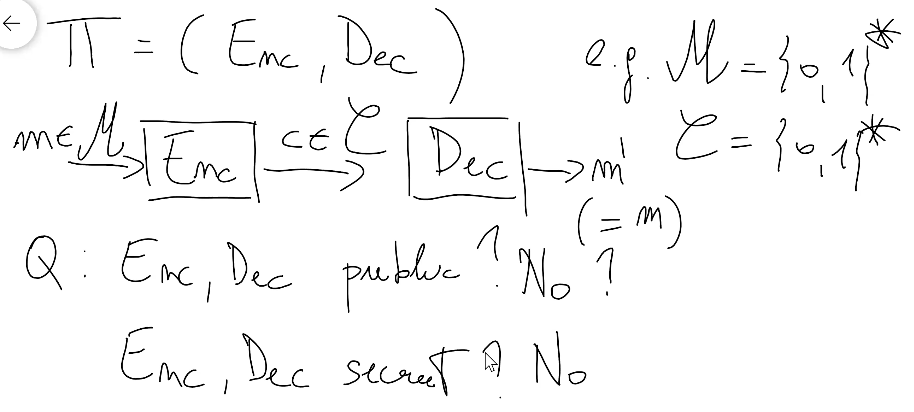 Π = (Enc, Dec) e.g. M = {0,1}*
m∈M Enc c∈C Dec m' C = {0,1}*
(= m)
Q: Enc, Dec public? No?
Enc, Dec secret? No